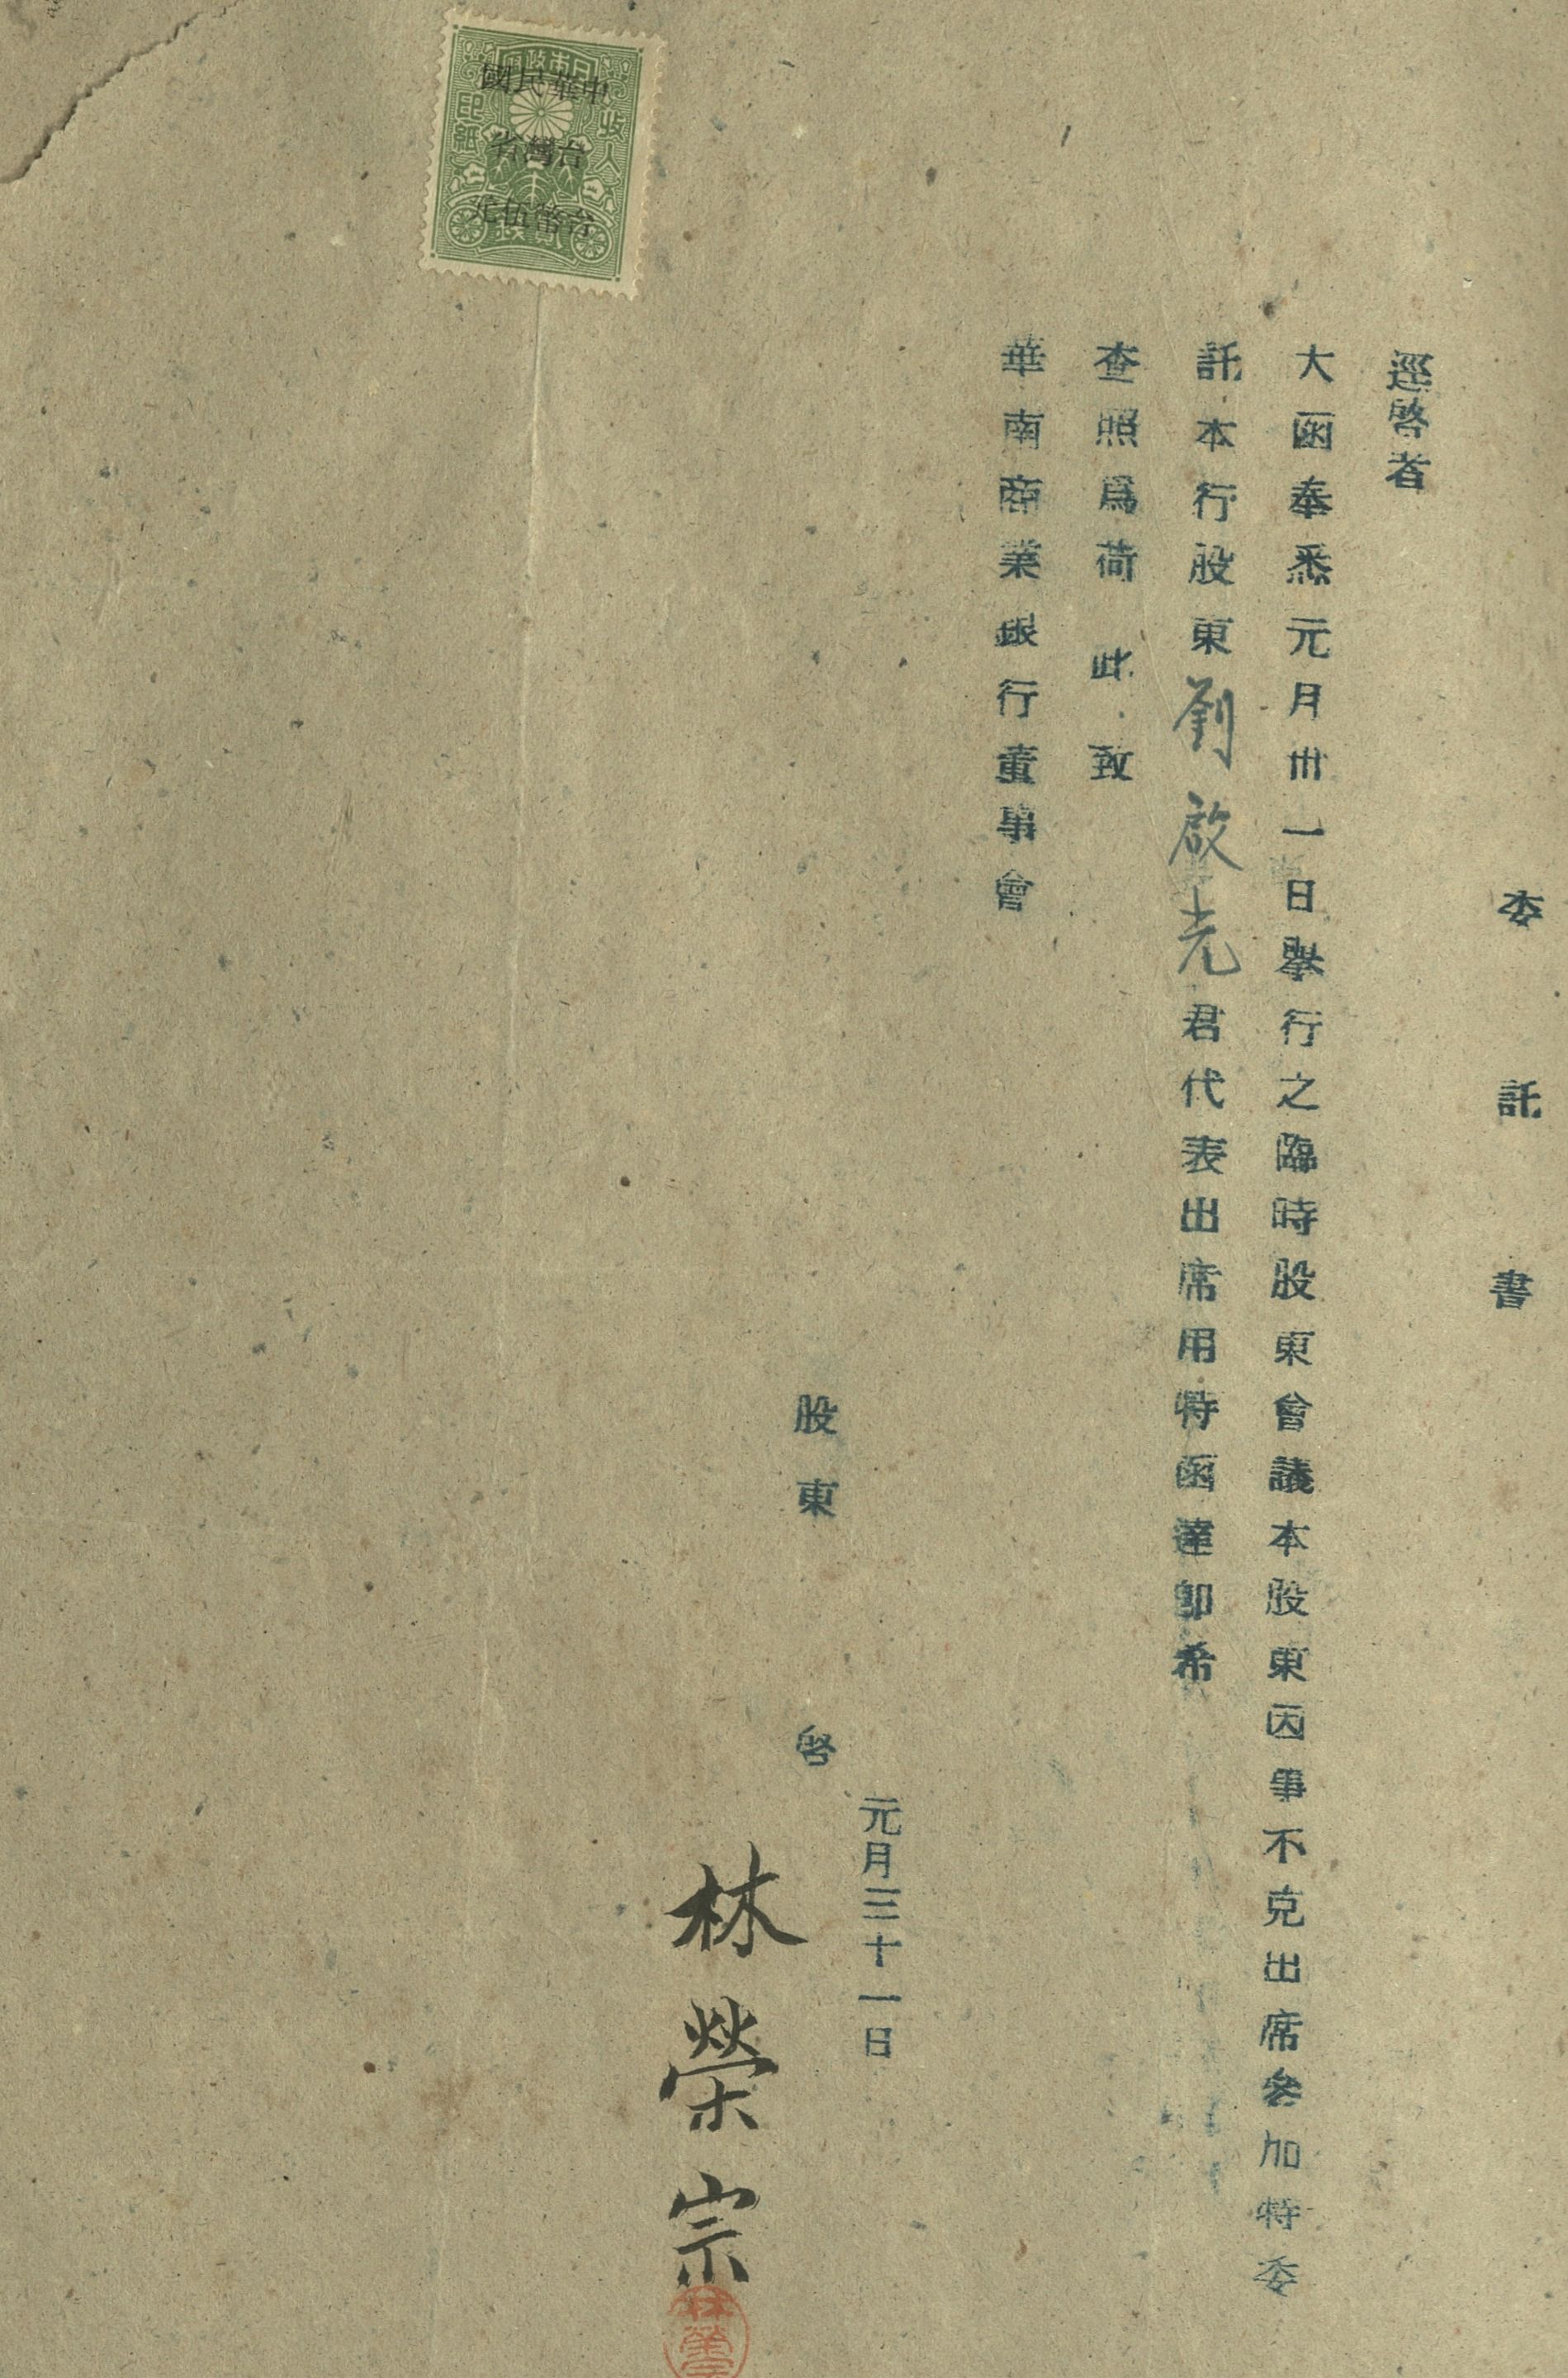 委託書
逕啓者
大函奉悉元月卅一日舉行之臨時股東會議本股東因事不克出席參加特委
託本行股東劉啟光君代表出席用特函達卽希
查照爲荷 此致
華南商業銀行董事會
元月三十一日
股東 啓
林榮宗
大日本政府
收入
印紙
中華民國
台灣省
台幣伍元
貳錢